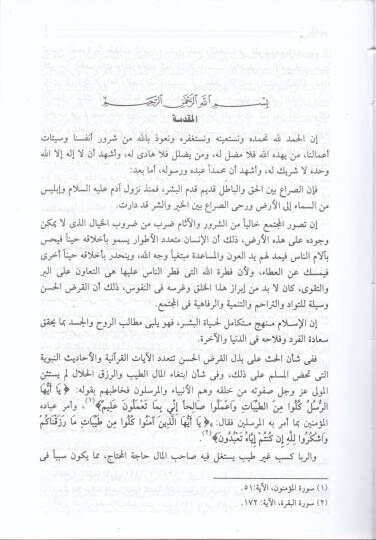 بسم الله الرحمن الرحيم
المقدسة
إن الحمد لله نحمده ونستعينه ونستغفره ونعوذ بالله من شرور أنفسنا وسيئات
أعمالنا، من يهده الله فلا مضل له، ومن يضلل فلا هادى له، وأشهد أن لا إله إلا الله
وحده لا شريك له، وأشهد أن محمداً عبده ورسوله، أما بعد:
فإن الصراع بين الحق والباطل قديم قدم البشر، فمنذ نزول آدم عليه السلام وإبليس
من السماء إلى الأرض ورحى الصراع بين الخير والشر قد دارت.
إن تصور المجتمع خالياً من الشرور والآثام ضرب من ضروب الخيال الذى لا يمكن
وجوده على هذه الأرض، ذلك أن الإنسان متعدد الأطوار يسمو بأخلاقه حيناً فيحس
بآلام الناس فيمد لهم يد العون والمساعدة مبتغياً وجه الله، وينحدر بأخلاقه حيناً أخرى
فيمسك عن العطاء، ولأن فطرة الله التى فطر الناس عليها هى التعاون على البر
والتقوى، كان لا بد من إبراز هذا الخلق وغرسه فى النفوس، ذلك أن القرض الحسن
وسيلة للتواد والتراحم والتنمية والرفاهية فى المجتمع.
إن الإسلام منهج متكامل لحياة البشر، فهو يلبى مطالب الروح والجسد بما يحقق
سعادة الفرد وفلاحه فى الدنيا والآخرة.
ففى شأن الحث على بذل القرض الحسن تتعدد الآيات القرآنية والأحاديث النبوية
التى تحض المسلم على ذلك، وفى شأن ابتغاء المال الطيب والرزق الحلال لم يستثن
المولى عز وجل صفوته من خلقه وهم الأنبياء والمرسلون فخاطبهم بقوله: ﴿ يَا أَيُّهَا
الرُّسُلُ كُلُوا مِنَ الطَّيِّبَاتِ وَاعْمَلُوا صَالِحًا إِنِّي بِمَا تَعْمَلُونَ عَلِيمٌ﴾(١)، وأمر عباده
المؤمنين بما أمر به المرسلين فقال: ﴿يَا أَيُّهَا الَّذِينَ آمَنُوا كُلُوا مِن طَيِّبَاتِ مَا رَزَقْنَاكُمْ
وَاشْكُرُوا لِلَّهِ إِن كُنتُمْ إِيَّاهُ تَعْبُدُونَ﴾(٢).
والربا كسب غير طيب يستغل فيه صاحب المال حاجة المحتاج، مما يكون سبباً فى
(١) سورة المؤمنون، الآية:٥١.
(٢) سورة البقرة، الآية: ١٧٢.